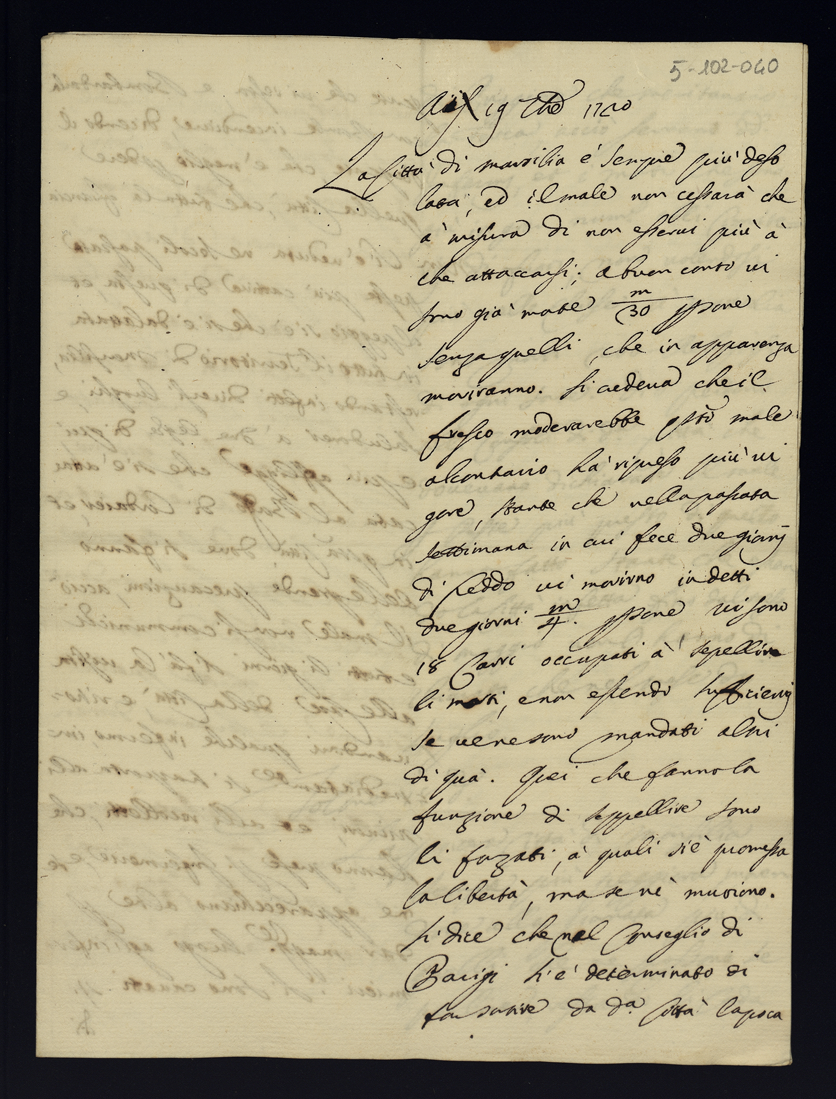 5-102-040
Aix 19 7bre 1720
La Città di Marsilia è sempre più deso
lata, ed il male non cessarà che
à misura di non esservi più à
che attaccarsi; a buon conto vi
sono già morte m/30 persone
senza quelli, che in apparenza
moriranno. Si credeva che il
fresco moderarebbe questo male
al contrario hà ripreso più vi
gore, stante che nella passata
settimana in cui fece due giorni
di freddo vi morirno in detti
due giorni m/4. persone vi sono
18 Carri occupati à sepellire
li morti, e non essendo sufficienti
se ne sono mandati altri
di quà. Quei che fanno la
funzione di seppellire sono
li forzati, à quali s'è promessa
la libertà, ma se nè muoiono.
Si dice che nel Conseglio di
Parigi s'è determinato di
far sortire da da. Città la poca